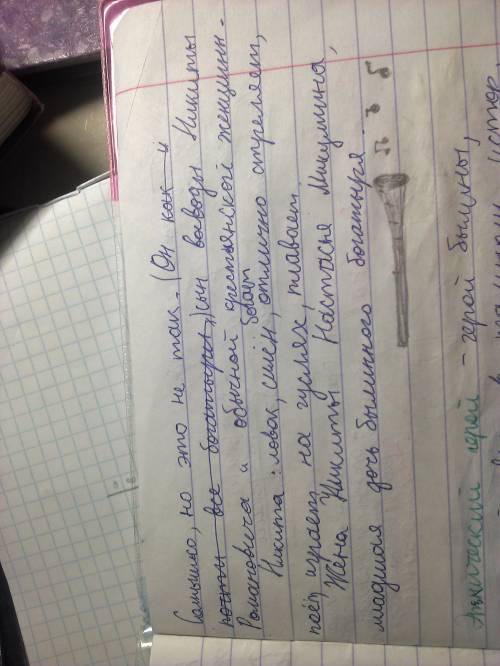 Солнышко, но это не так. (Он как и
почти все богатыри,) сын воеводы Никиты
Романовича и обычной крестьянской женщины.
богат
Никита: ловок, силён, отлично стреляет,
поёт, играет на гуслях, плавает.
Жена Никиты Настасья Микулишна,
младшая дочь былинного богатыря.
герой - герой былины,